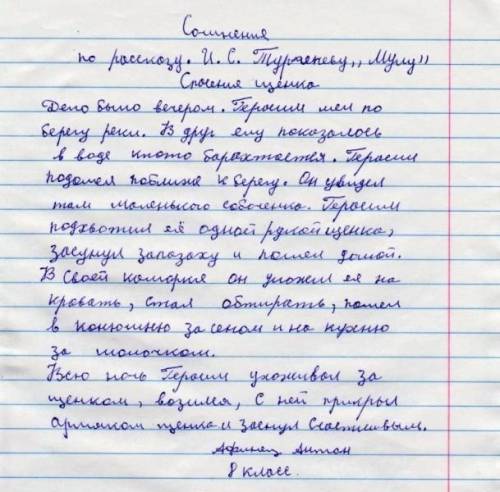 Сочинения
по рассказу. И. С. Тургеневу,, Муму"
Спасения щенка
Дело было вечером. Герасим шел по
берегу реки. В друг ему показалось
в воде ктото барахтается. Герасим
подошел поближе к берегу. Он увидел
там маленького собоченка. Герасим
подхватил её одной рукой щенка,
засунул запазаху и пошел домой.
В Своей каморке он уложил ея на
кровать, стал обтирать, пошел
в конюшню за сеном и на кухню
за молочком.
Всю ночь Герасим ухоживал за
щенком, возился, с ней прикрыл
армяком щенка и заснул счастливым.
Антон
8 класс.